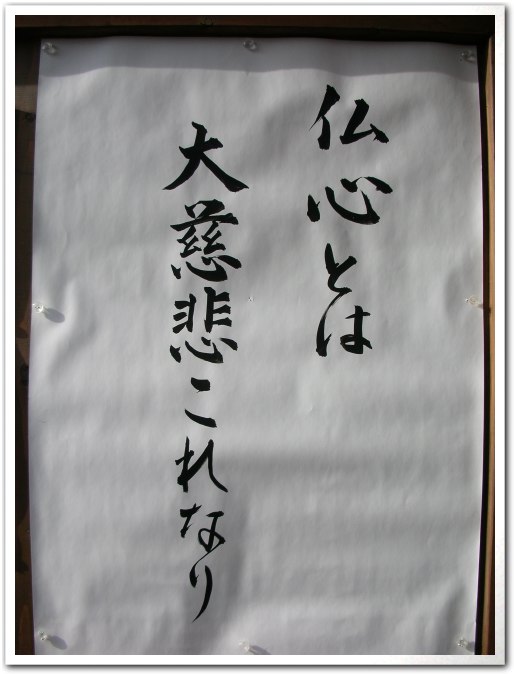 仏心とは
大慈悲これなり